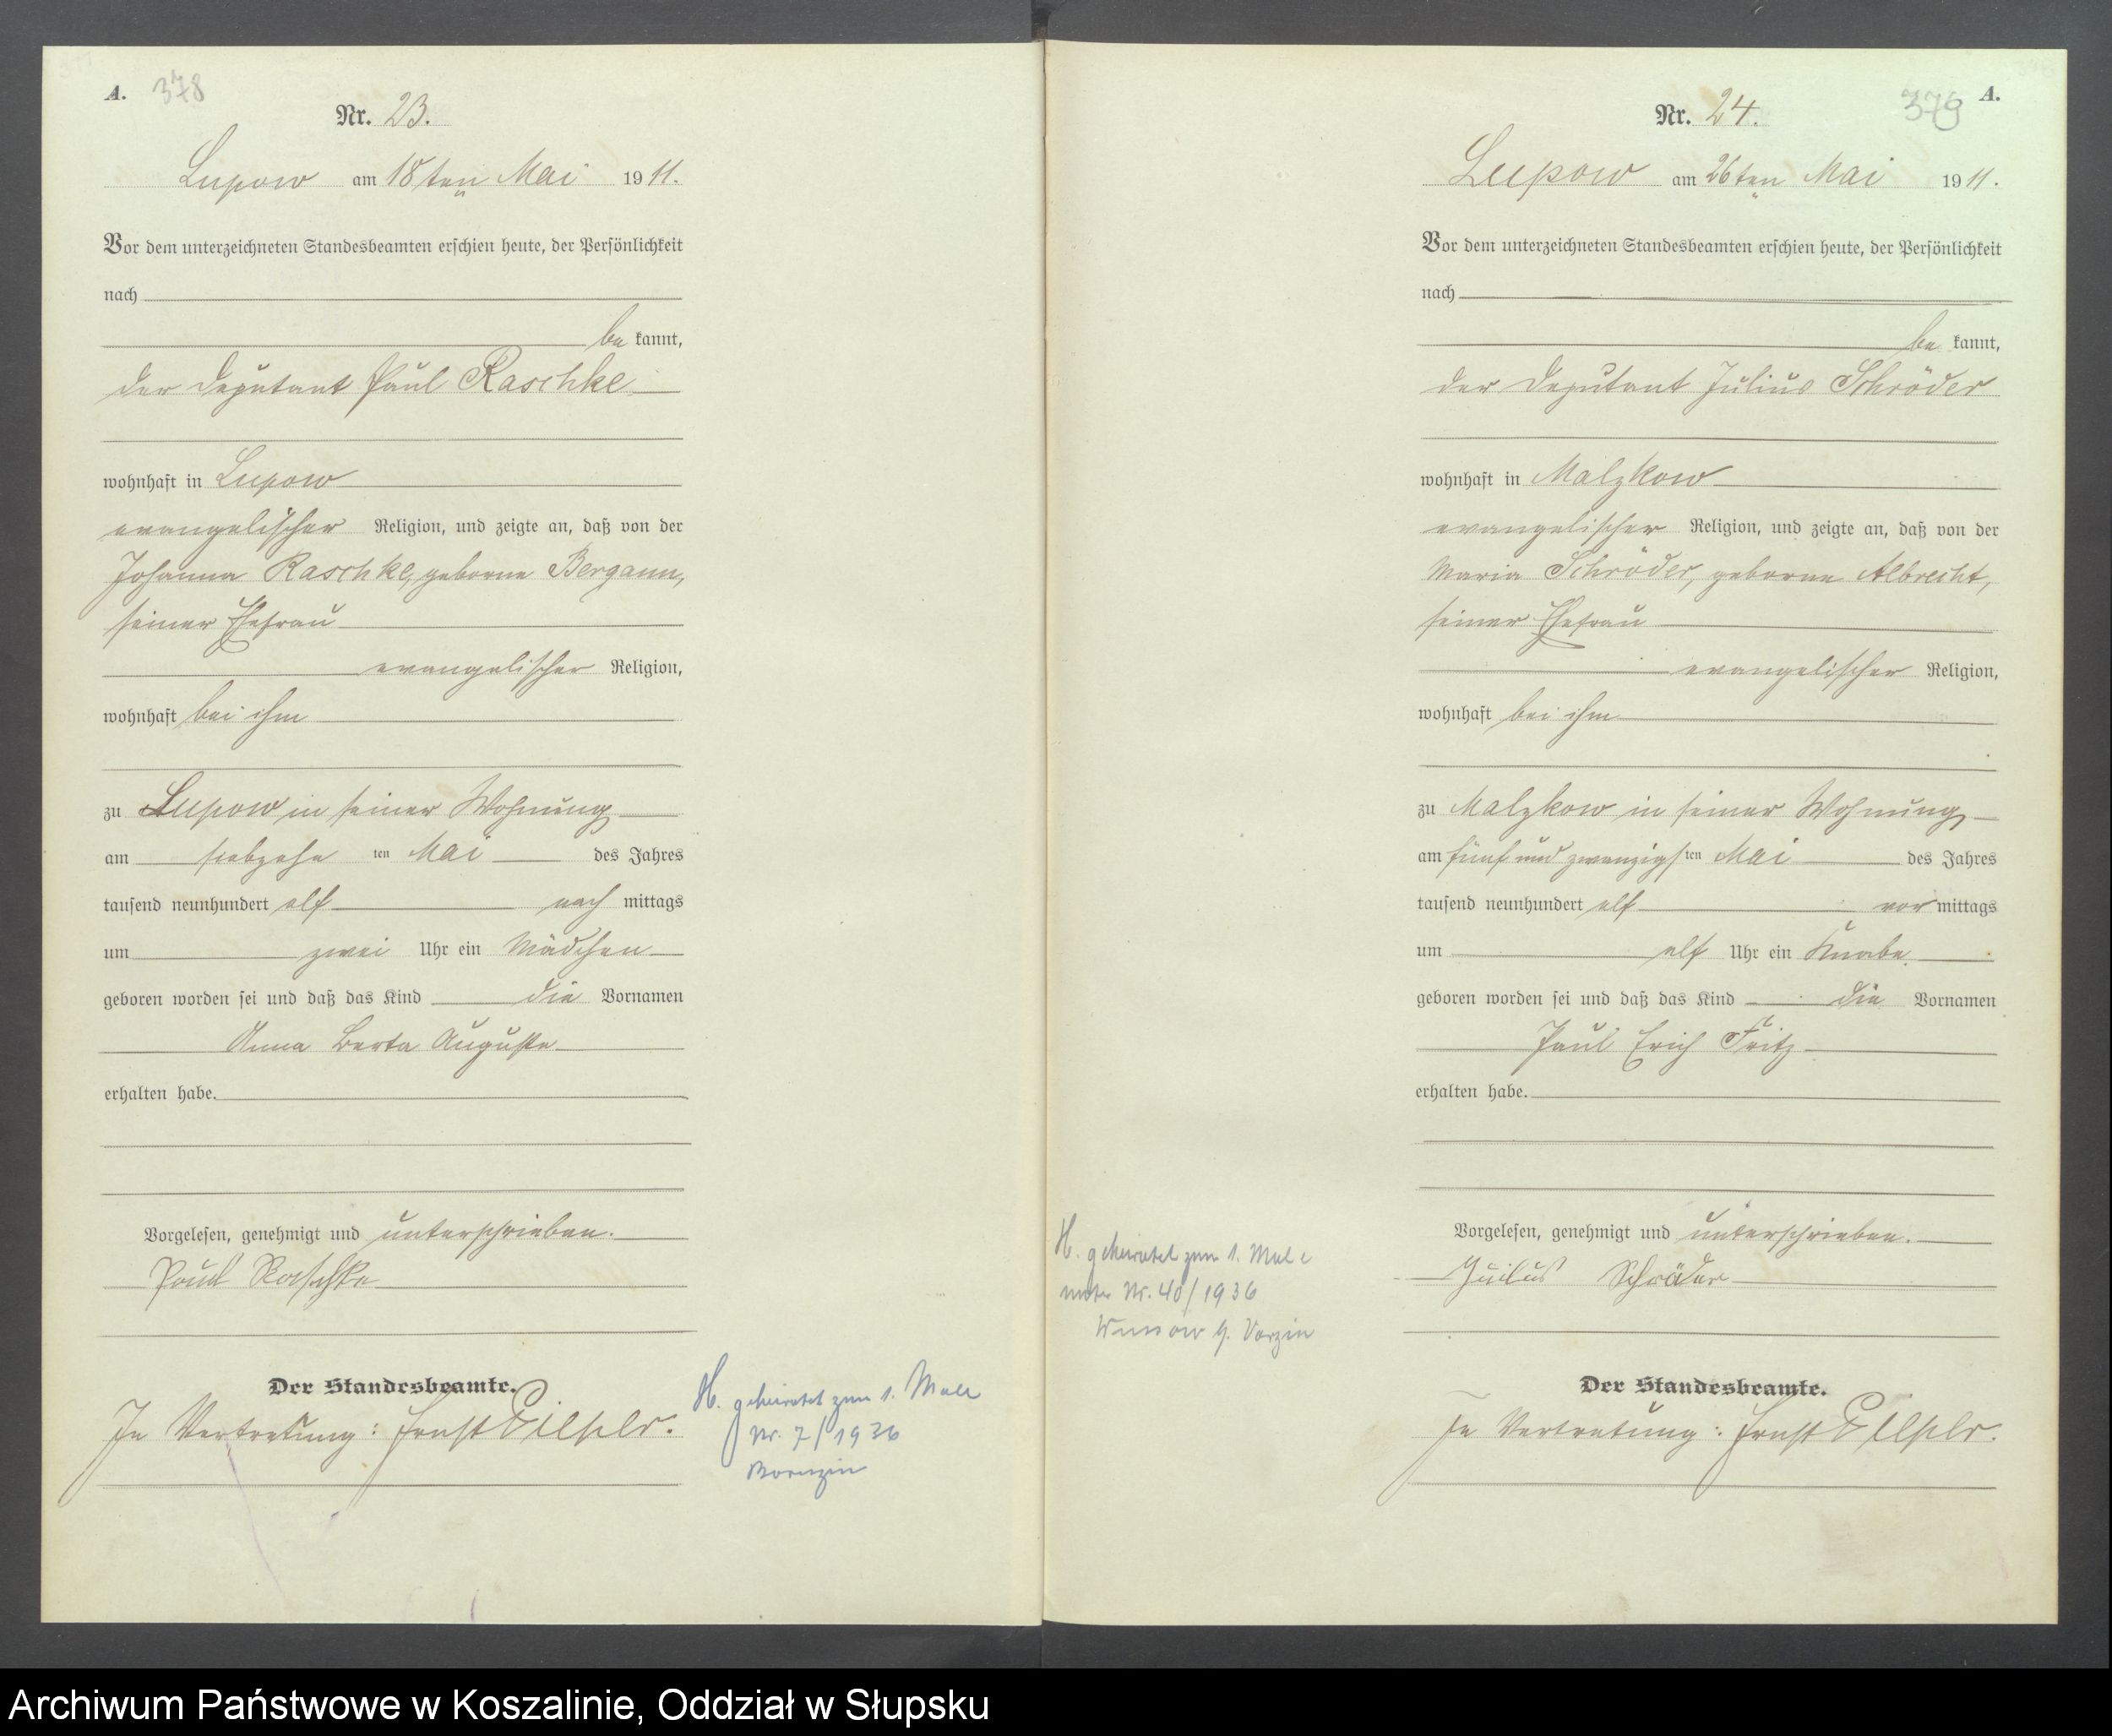 A. 378
Nr. 23.
Lupow am 18ten Mai 1911.
Vor dem unterzeichneten Standesbeamten erschien heute, der Persönlichkeit
nach
be kannt,
der Deputant Paul Raschke
wohnhaft in Lupow
evangelischer Religion, und zeigte an, daß von der
Johanna Raschke, geborne Bergann,
seiner Ehefrau
evangelischer Religion,
wohnhaft bei ihm
zu Lupow in seiner Wohnung
am siebzehn ten Mai des Jahres
tausend neunhundert elf nach mittags
um zwei Uhr ein Mädchen
geboren worden sei und daß das Kind die Vornamen
Anna Berta Auguste
erhalten habe.
Vorgelesen, genehmigt und unterschrieben.
Paul Raschke
Der Standesbeamte.
In Vertretung: Ernst
H. geheiratet zum 1. Male
Nr. 7/1936
Bornzin
379 A.
Nr. 24.
Lupow am 26ten Mai 1911.
Vor dem unterzeichneten Standesbeamten erschien heute, der Persönlichkeit
nach
be kannt,
der Deputant Julius Schröder
wohnhaft in Malzkow
evangelischer Religion, und zeigte an, daß von der
Maria Schröder, geborne Albrecht,
seiner Ehefrau
evangelischer Religion,
wohnhaft bei ihm
zu Malzkow in seiner Wohnung
am fünf und zwanzigsten Mai des Jahres
tausend neunhundert elf vor mittags
um elf Uhr ein Knabe
geboren worden sei und daß das Kind die Vornamen
Paul Erich Fritz
erhalten habe.
Vorgelesen, genehmigt und unterschrieben.
Julius Schröder
Der Standesbeamte.
In Vertretung: Ernst
H. geheiratet zum 1. Male
unter Nr. 40/1936
Wussow Varzin
Archiwum Państwowe w Koszalinie, Oddział w Słupsku